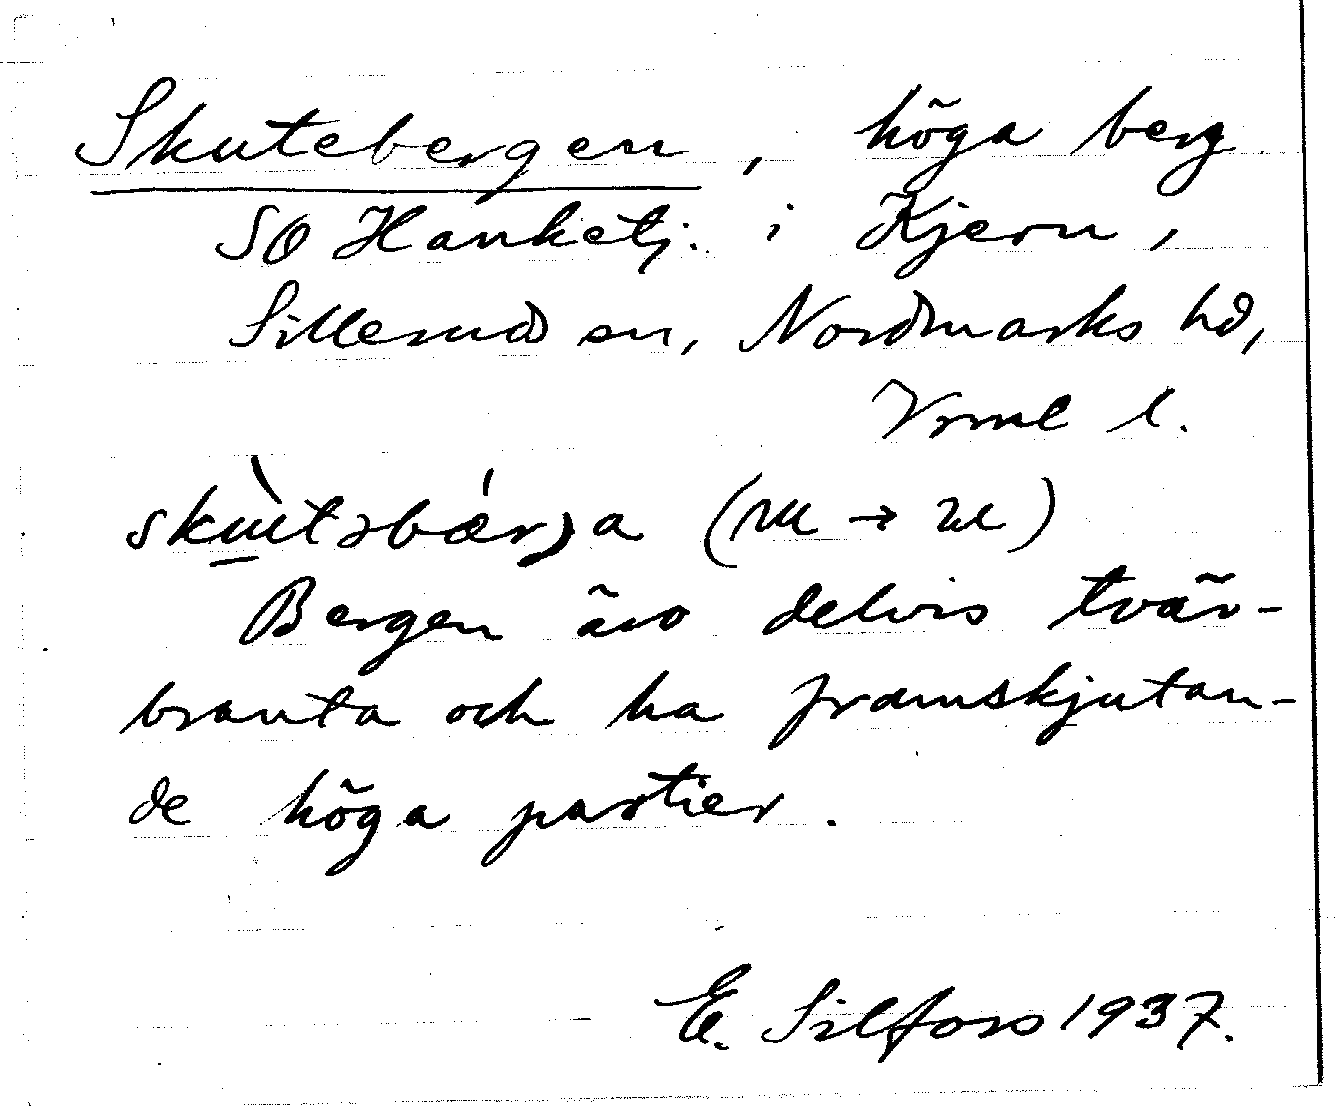 Skutebergen, höga berg
SO Hanketj. i Kjern,
Sillerud sn, Nordmarks hd,
Vrml l.
Bergen äro delvis tvär-
branta och ha framskjutan-
de höga partier.
E. Silfors 1937.